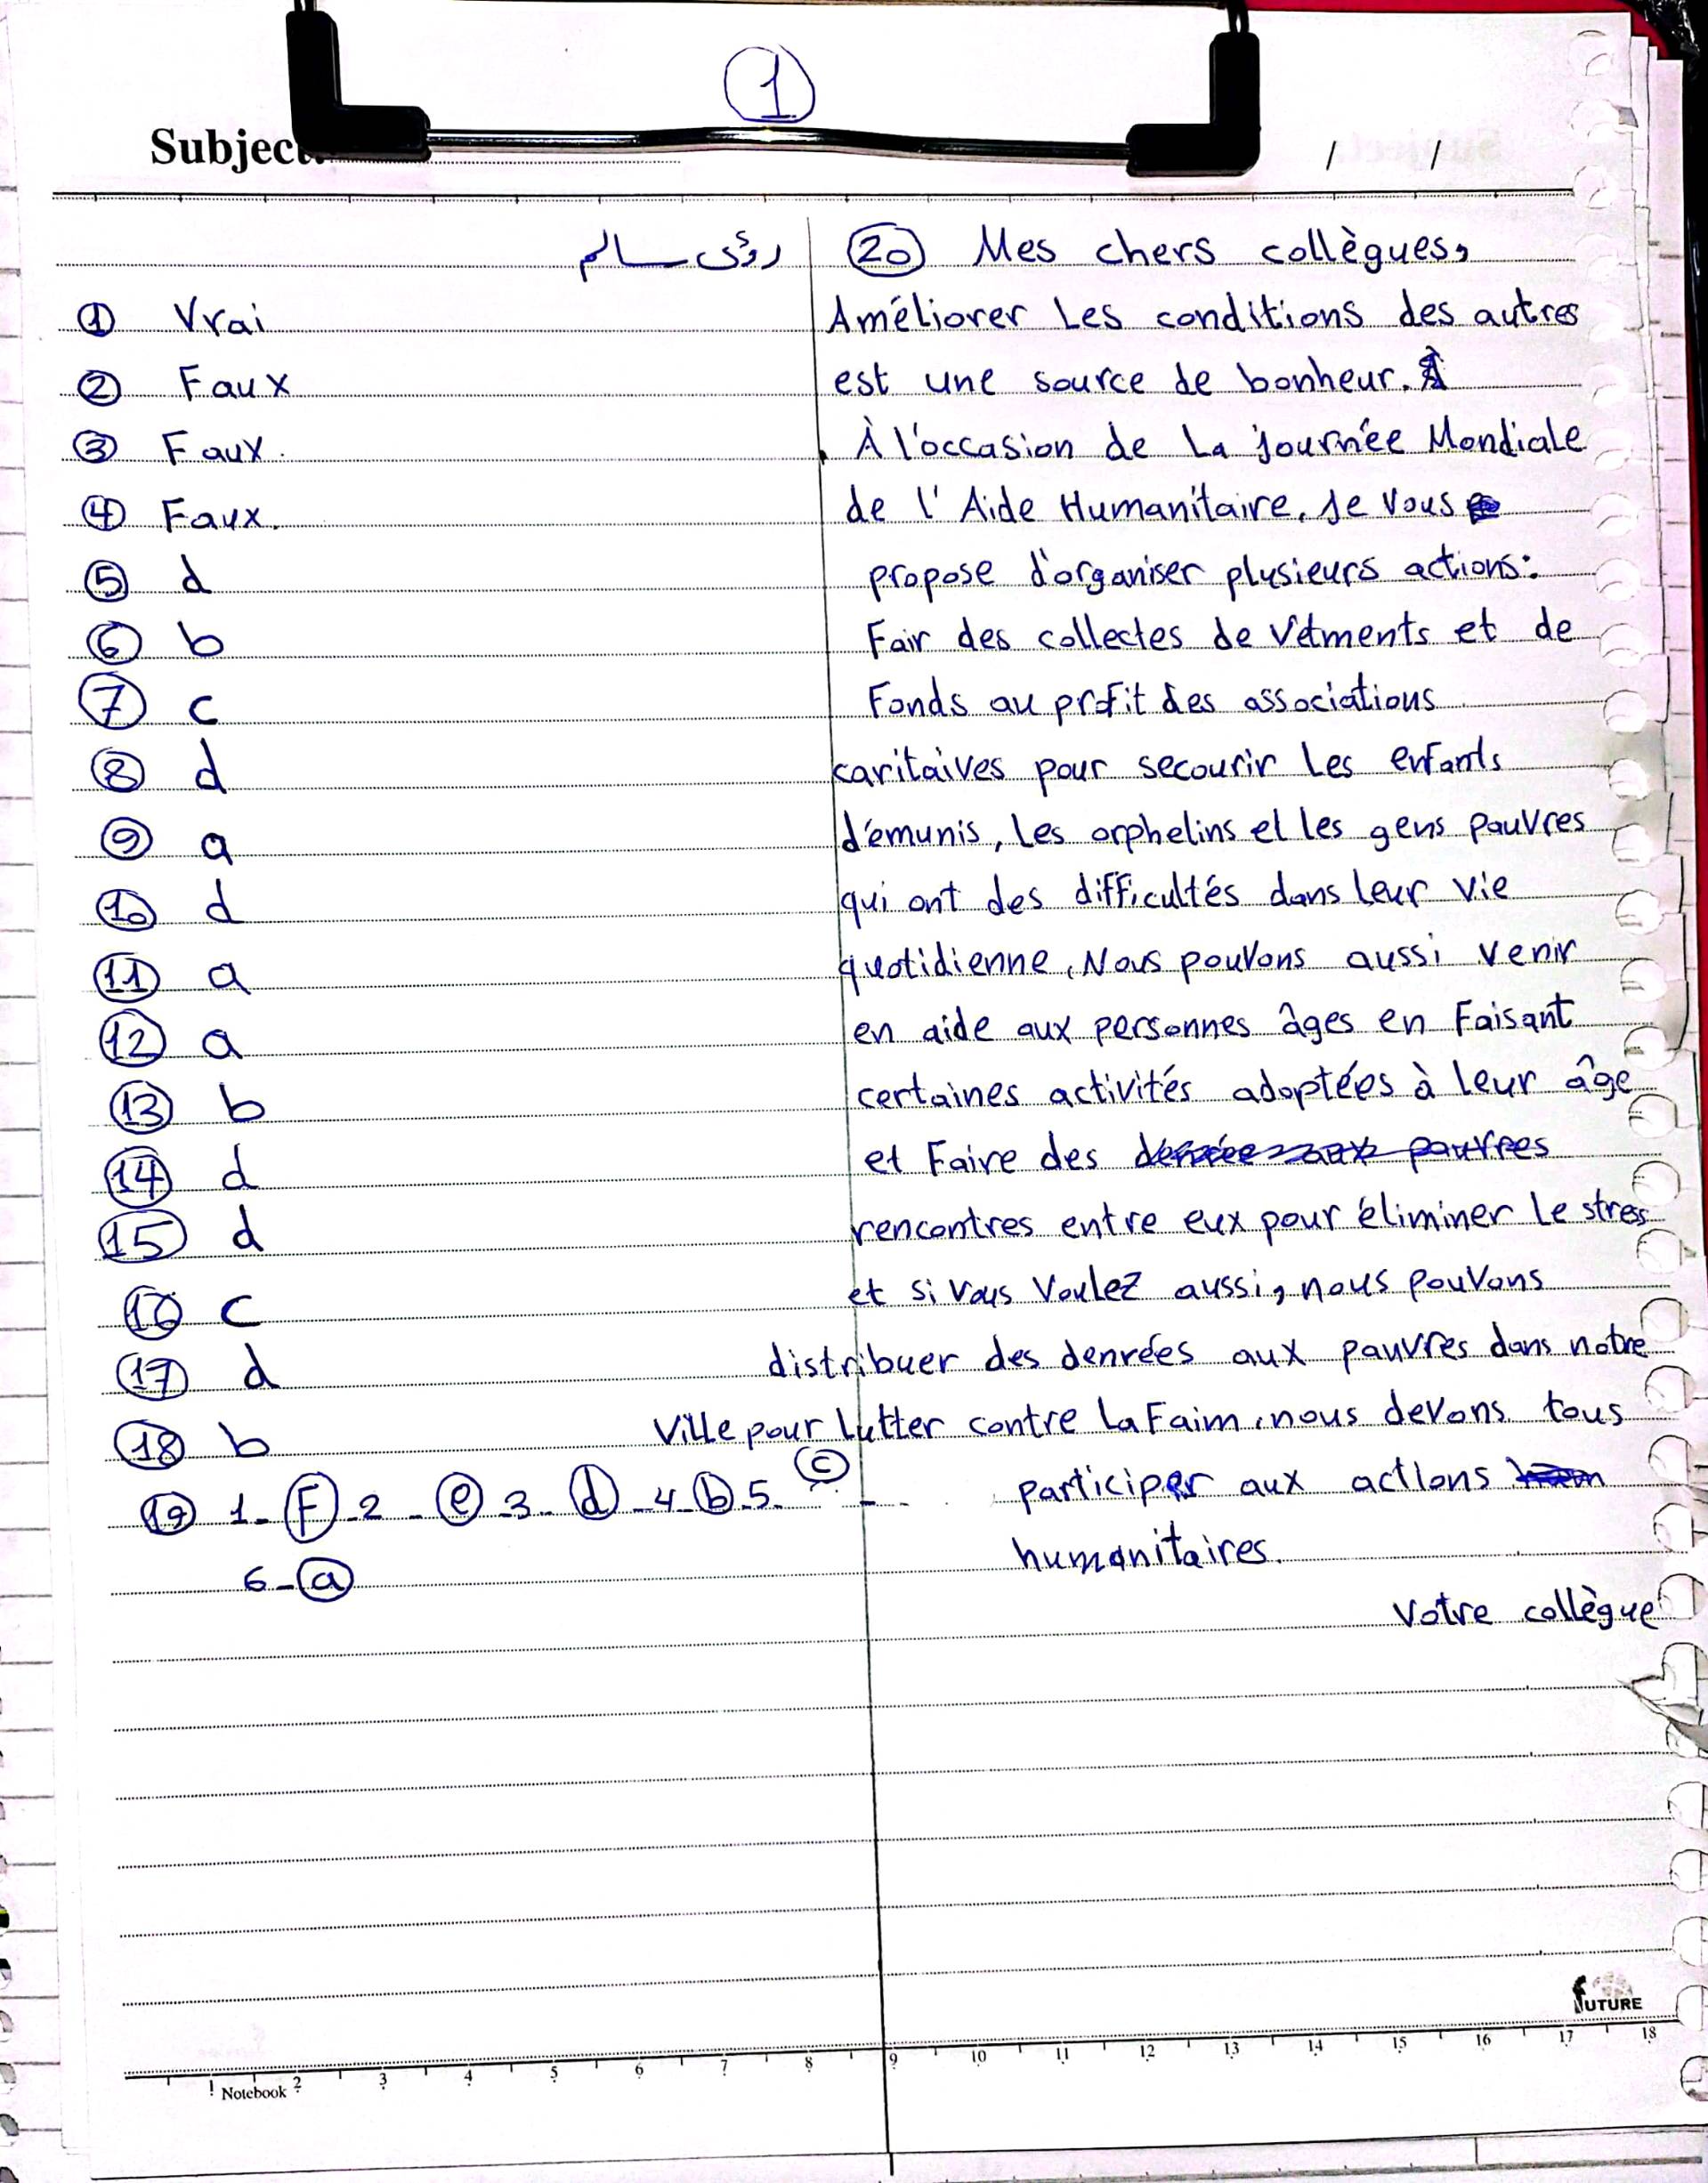 1
Subject:
/ /
رؤى سالم
① Vrai
② Faux
③ Faux.
④ Faux.
⑤ d
⑥ b
⑦ c
⑧ d
⑨ a
⑩ d
⑪ a
⑫ a
⑬ b
⑭ d
⑮ d
⑯ c
⑰ d
⑱ b
⑲ 1- F -2 - e -3- d -4- b -5- c
6- a
⑳ Mes chers collègues,
Améliorer Les conditions des autres
est une source de bonheur.
À l'occasion de La journée Mondiale
de l'Aide Humanitaire, Je vous
propose d'organiser plusieurs actions:
Fair des collectes de vêtments et de
Fonds au prfit des associations
caritaives pour secourir Les enfants
démunis, Les orphelins el les gens pauvres
qui ont des difficultés dans leur vie
quotidienne, Nous pouvons aussi venir
en aide aux personnes âges en Faisant
certaines activités adaptées à leur âge
et Faire des
rencontres entre eux pour éliminer le stress
et si vous voulez aussi, nous pouvons
distribuer des denrées aux pauvres dans notre
ville pour lutter contre la Faim, nous devons tous
participer aux actions
humanitaires.
Votre collègue
FUTURE
1 2 3 4 5 6 7 8 9 10 11 12 13 14 15 16 17 18
Notebook